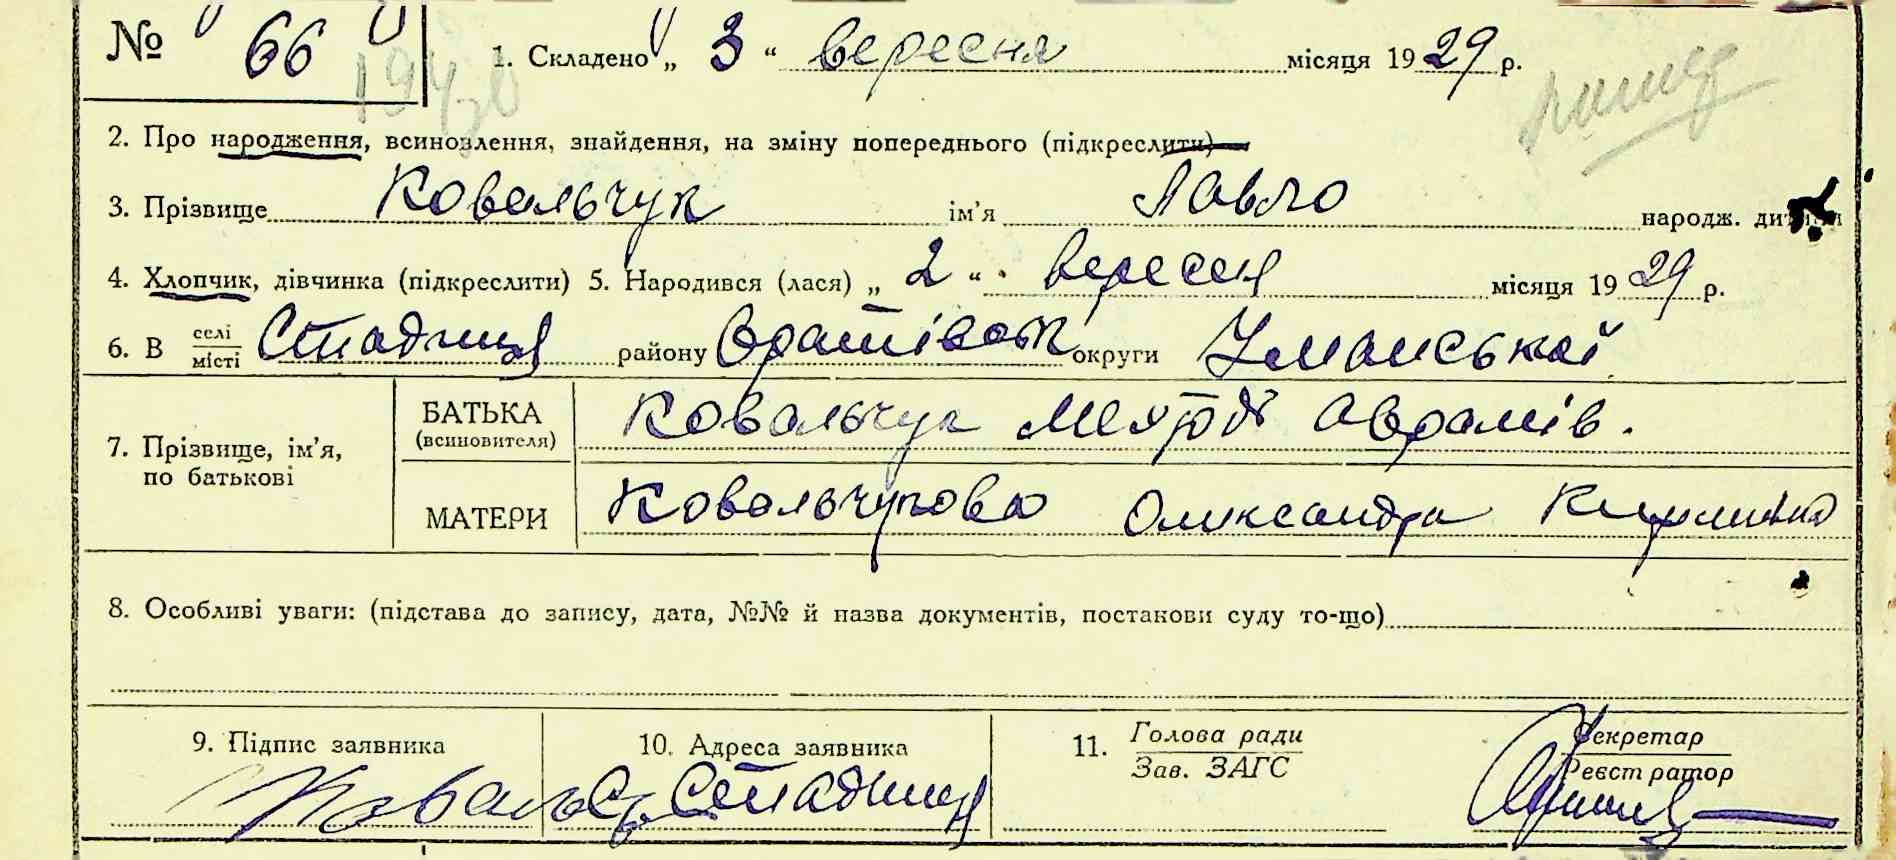 № 66 1. Складено „ 3 “ вересня місяця 1929 р.
2. Про народження, всиновлення, знайдення, на зміну попереднього (підкреслити)
3. Прізвище Ковальчук ім’я Павло народж. дитини
4. Хлопчик, дівчинка (підкреслити) 5. Народився (лася) „ 2 “ вересня місяця 1929 р.
6. В селі / місті Стадниця району Оратівськ округи Уманської
7. Прізвище, ім’я, по батькові
БАТЬКА (всиновителя) Ковальчук Мехтоді Аврамів.
МАТЕРИ Ковальчукова Олександра Кирилівна
8. Особливі уваги: (підстава до запису, дата, №№ й назва документів, постанови суду то-що)
9. Підпис заявника
10. Адреса заявника
11. Голова ради / Зав. ЗАГС
Секретар / Реєстратор
Коваль с. Стадниця